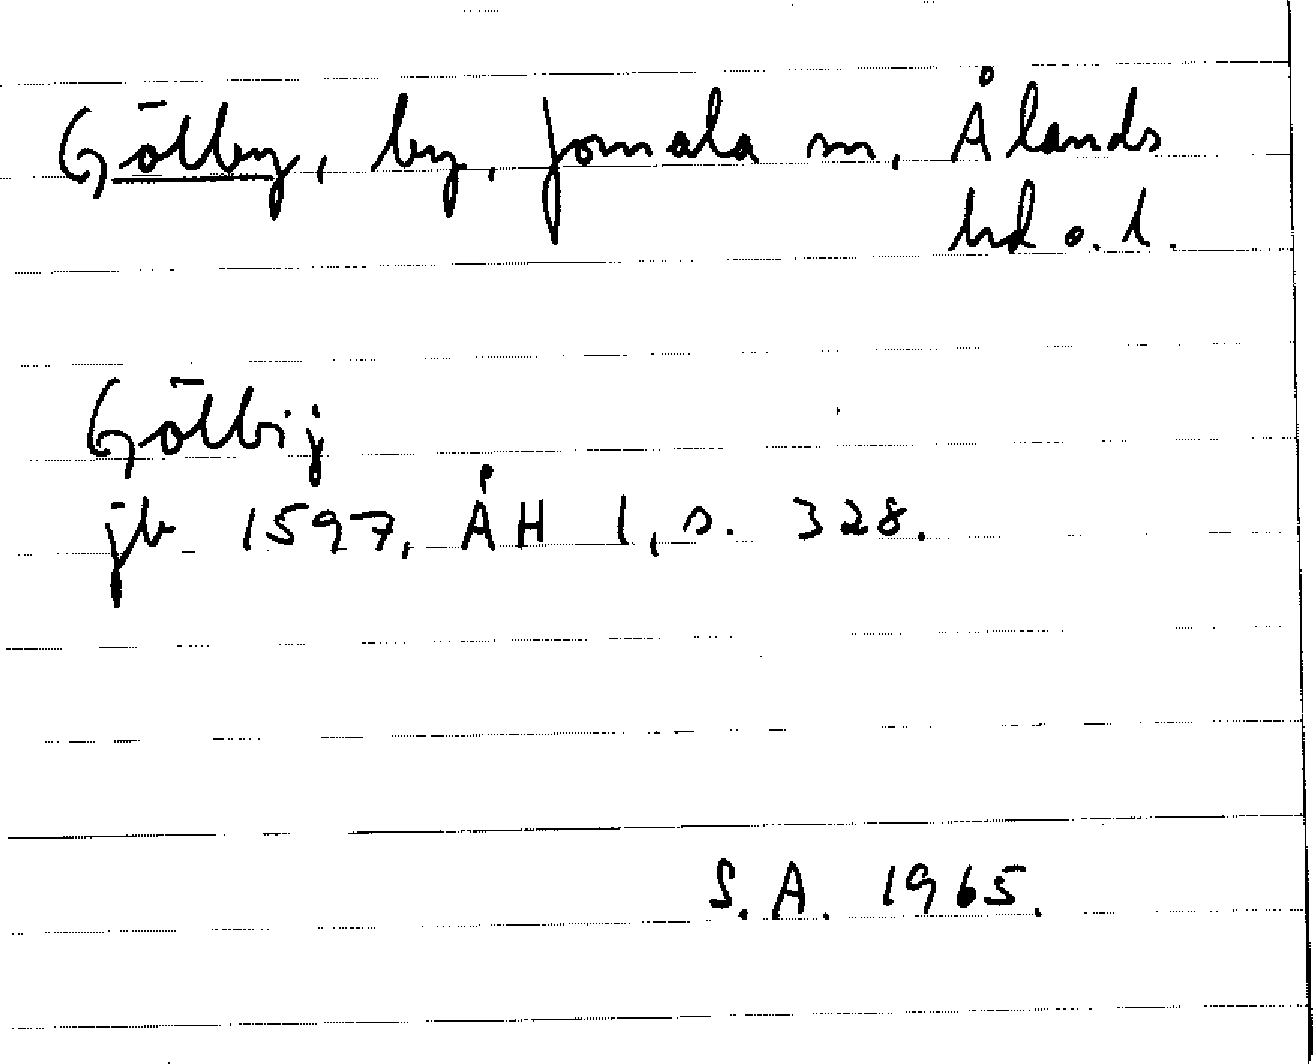 Gölby, by, Jomala sn, Ålands
hd o. l.
Gölbij
jb 1597, ÅH 1, s. 328.
S.A. 1965.